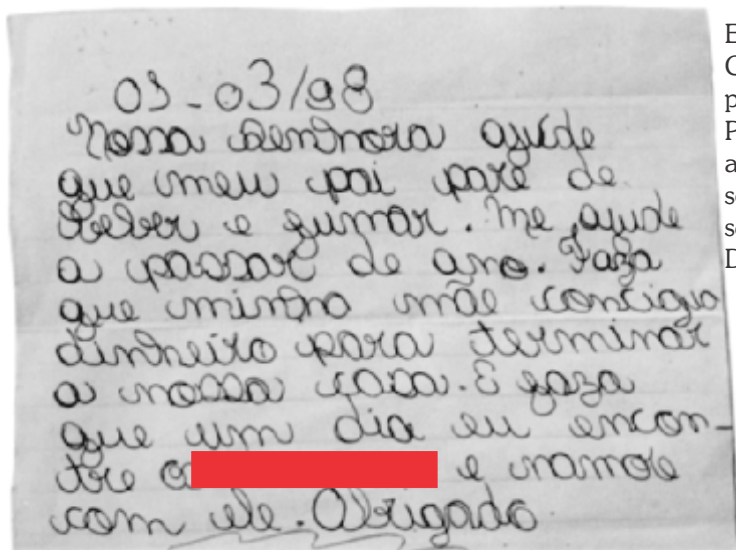 03-03/98
Nossa Senhora ajude
que meu pai pare de
beber e fumar. Me ajude
a passar de ano. Faza
que minha mãe consiga
dinheiro para terminar
a nossa casa. E faza
que um dia eu encon-
tre o e namore
com ele. Obrigado
E
C
p
P
a
s
s
D